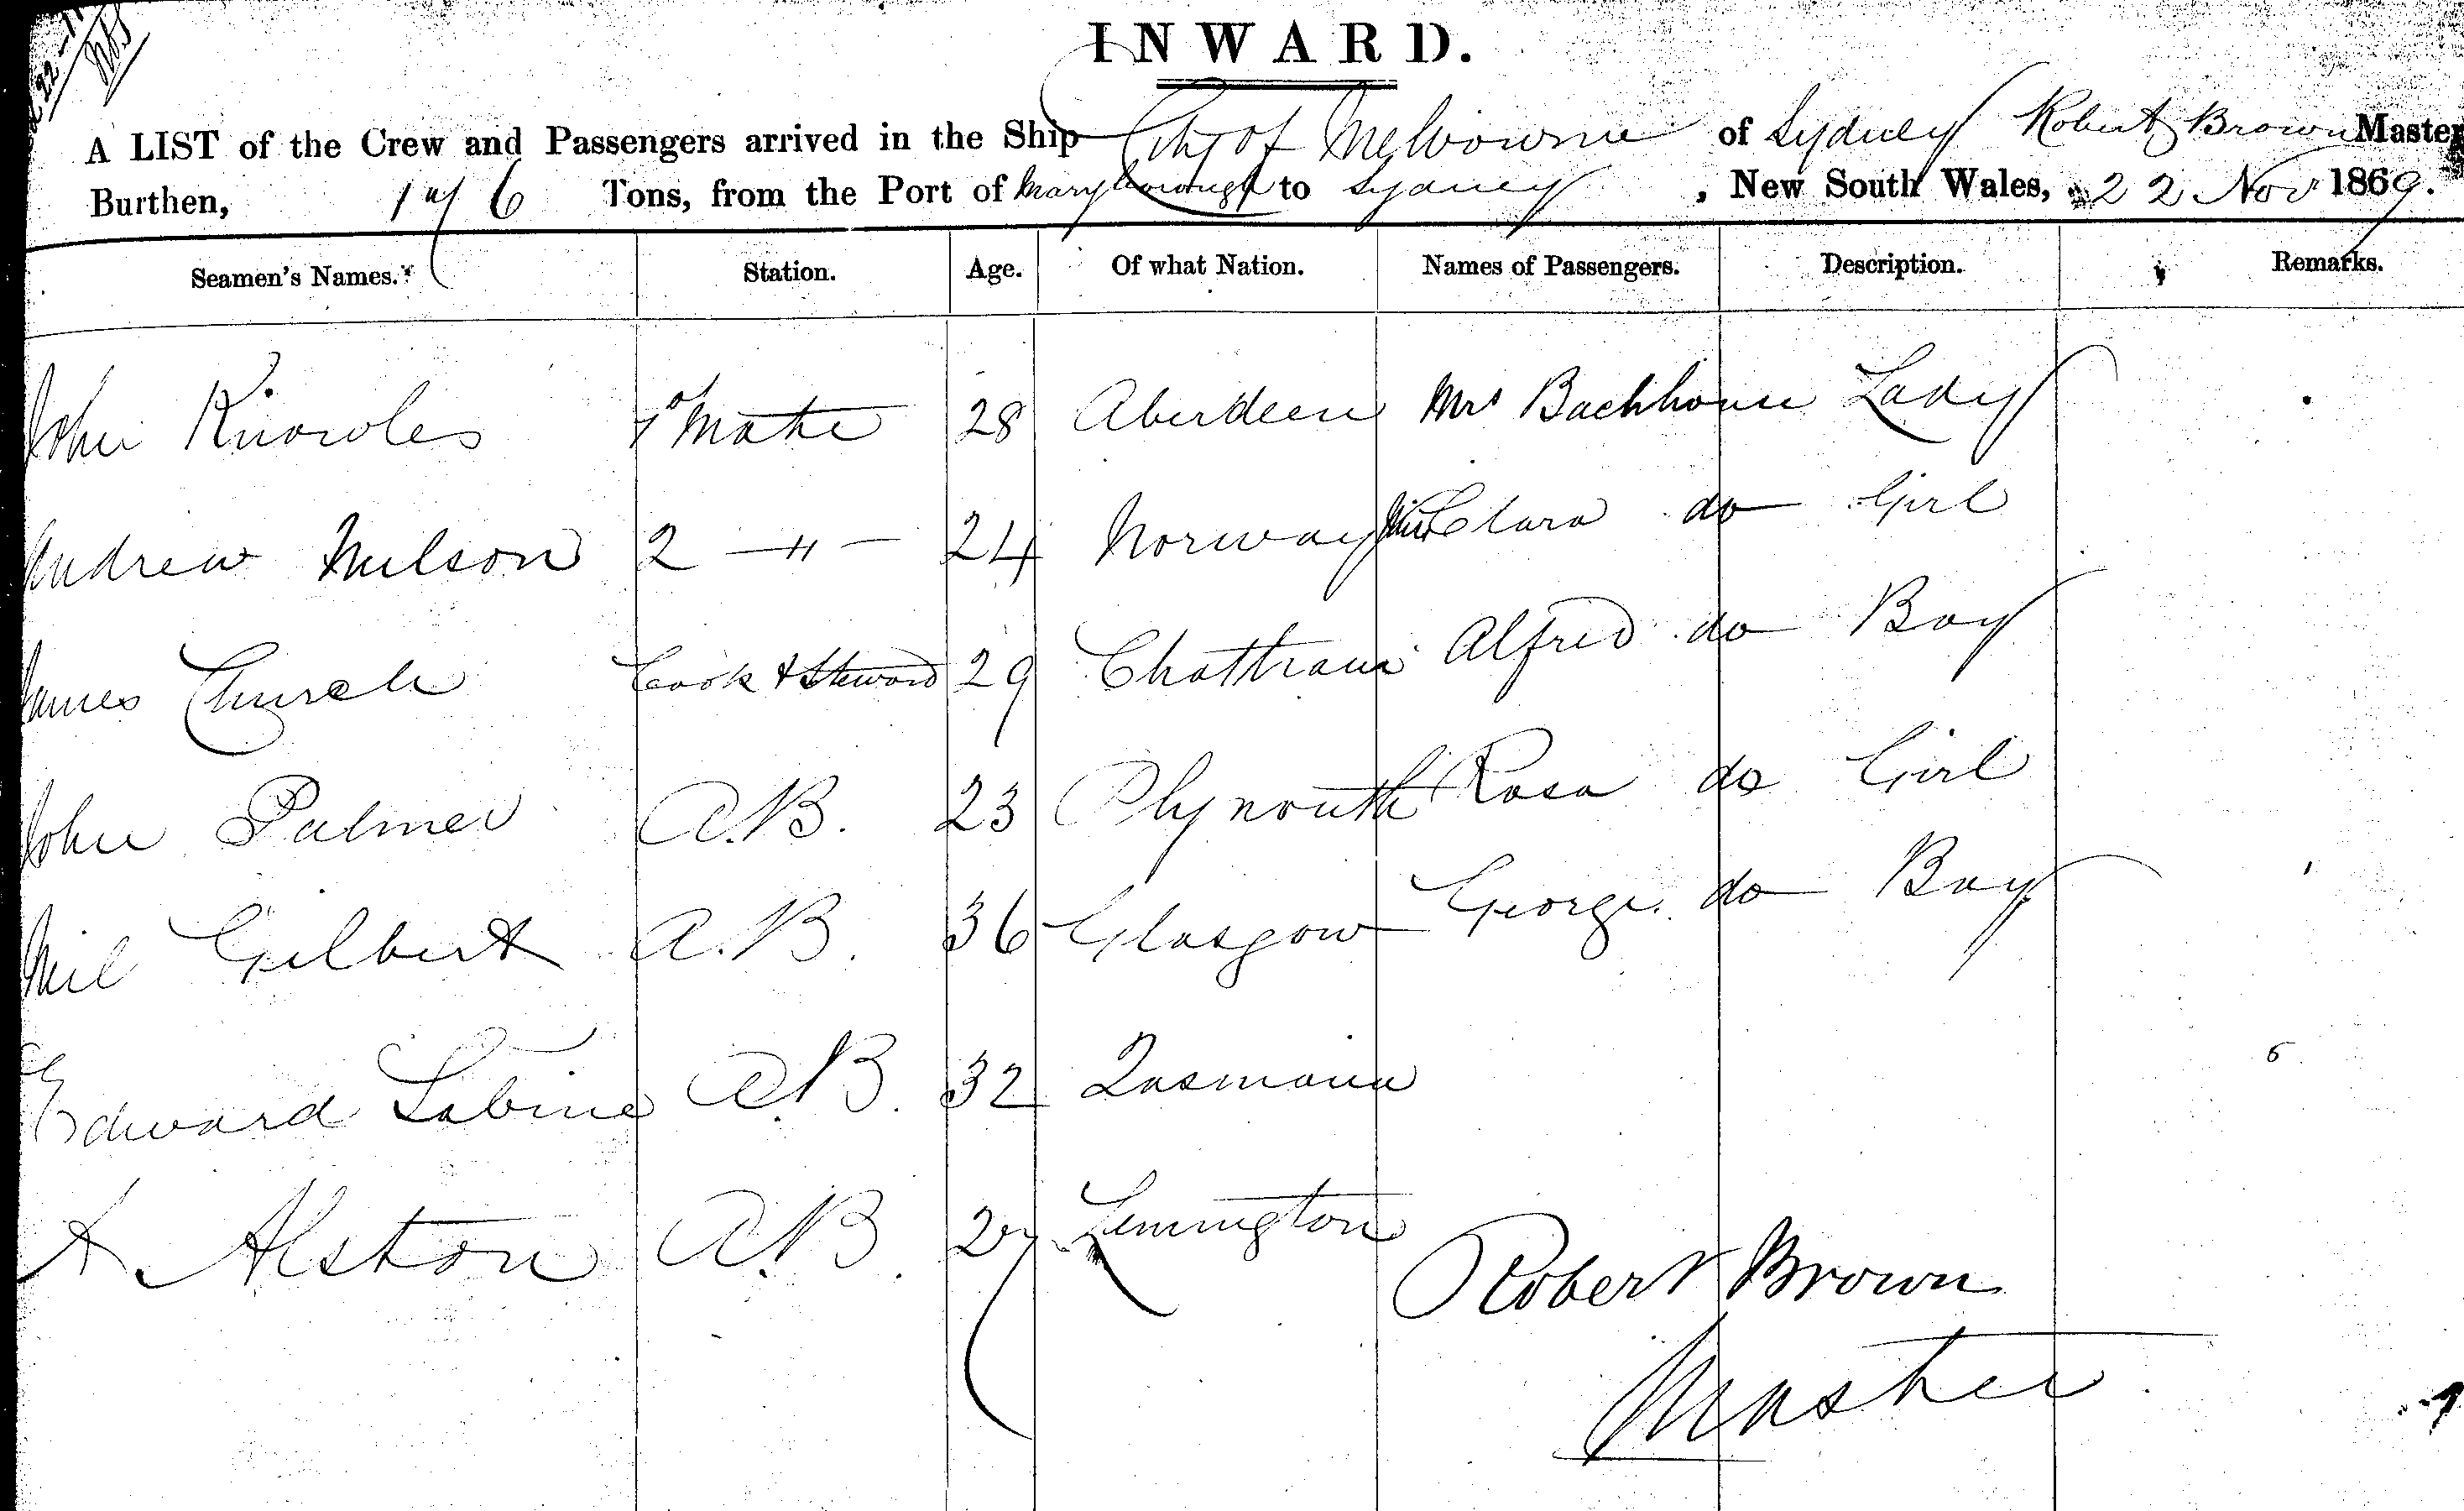 INWARD.
A LIST of the Crew and Passengers arrived in the Ship City of Melbourne of Sydney Robert Brown Master
Burthen, 176 Tons, from the Port of Maryborough to Sydney, New South Wales, 22 Nov 1869.
Seamen's Names. Station. Age. Of what Nation. Names of Passengers. Description. Remarks.
John Knowles 1st Mate 28 Aberdeen Mrs Backhouse Lady
Andrew Nielson 2 — " — 24 Norway Miss Clara do Girl
James Church Cook & Steward 29 Chattham Alfred do Boy
John Palmer A.B. 23 Plymouth Rosa do Girl
Neil Gilbert A.B. 36 Glasgow George do Boy
Edward Sabine A.B. 32 Tasmania
A. Alston A.B. 27 Lemington
Robert Brown
Master